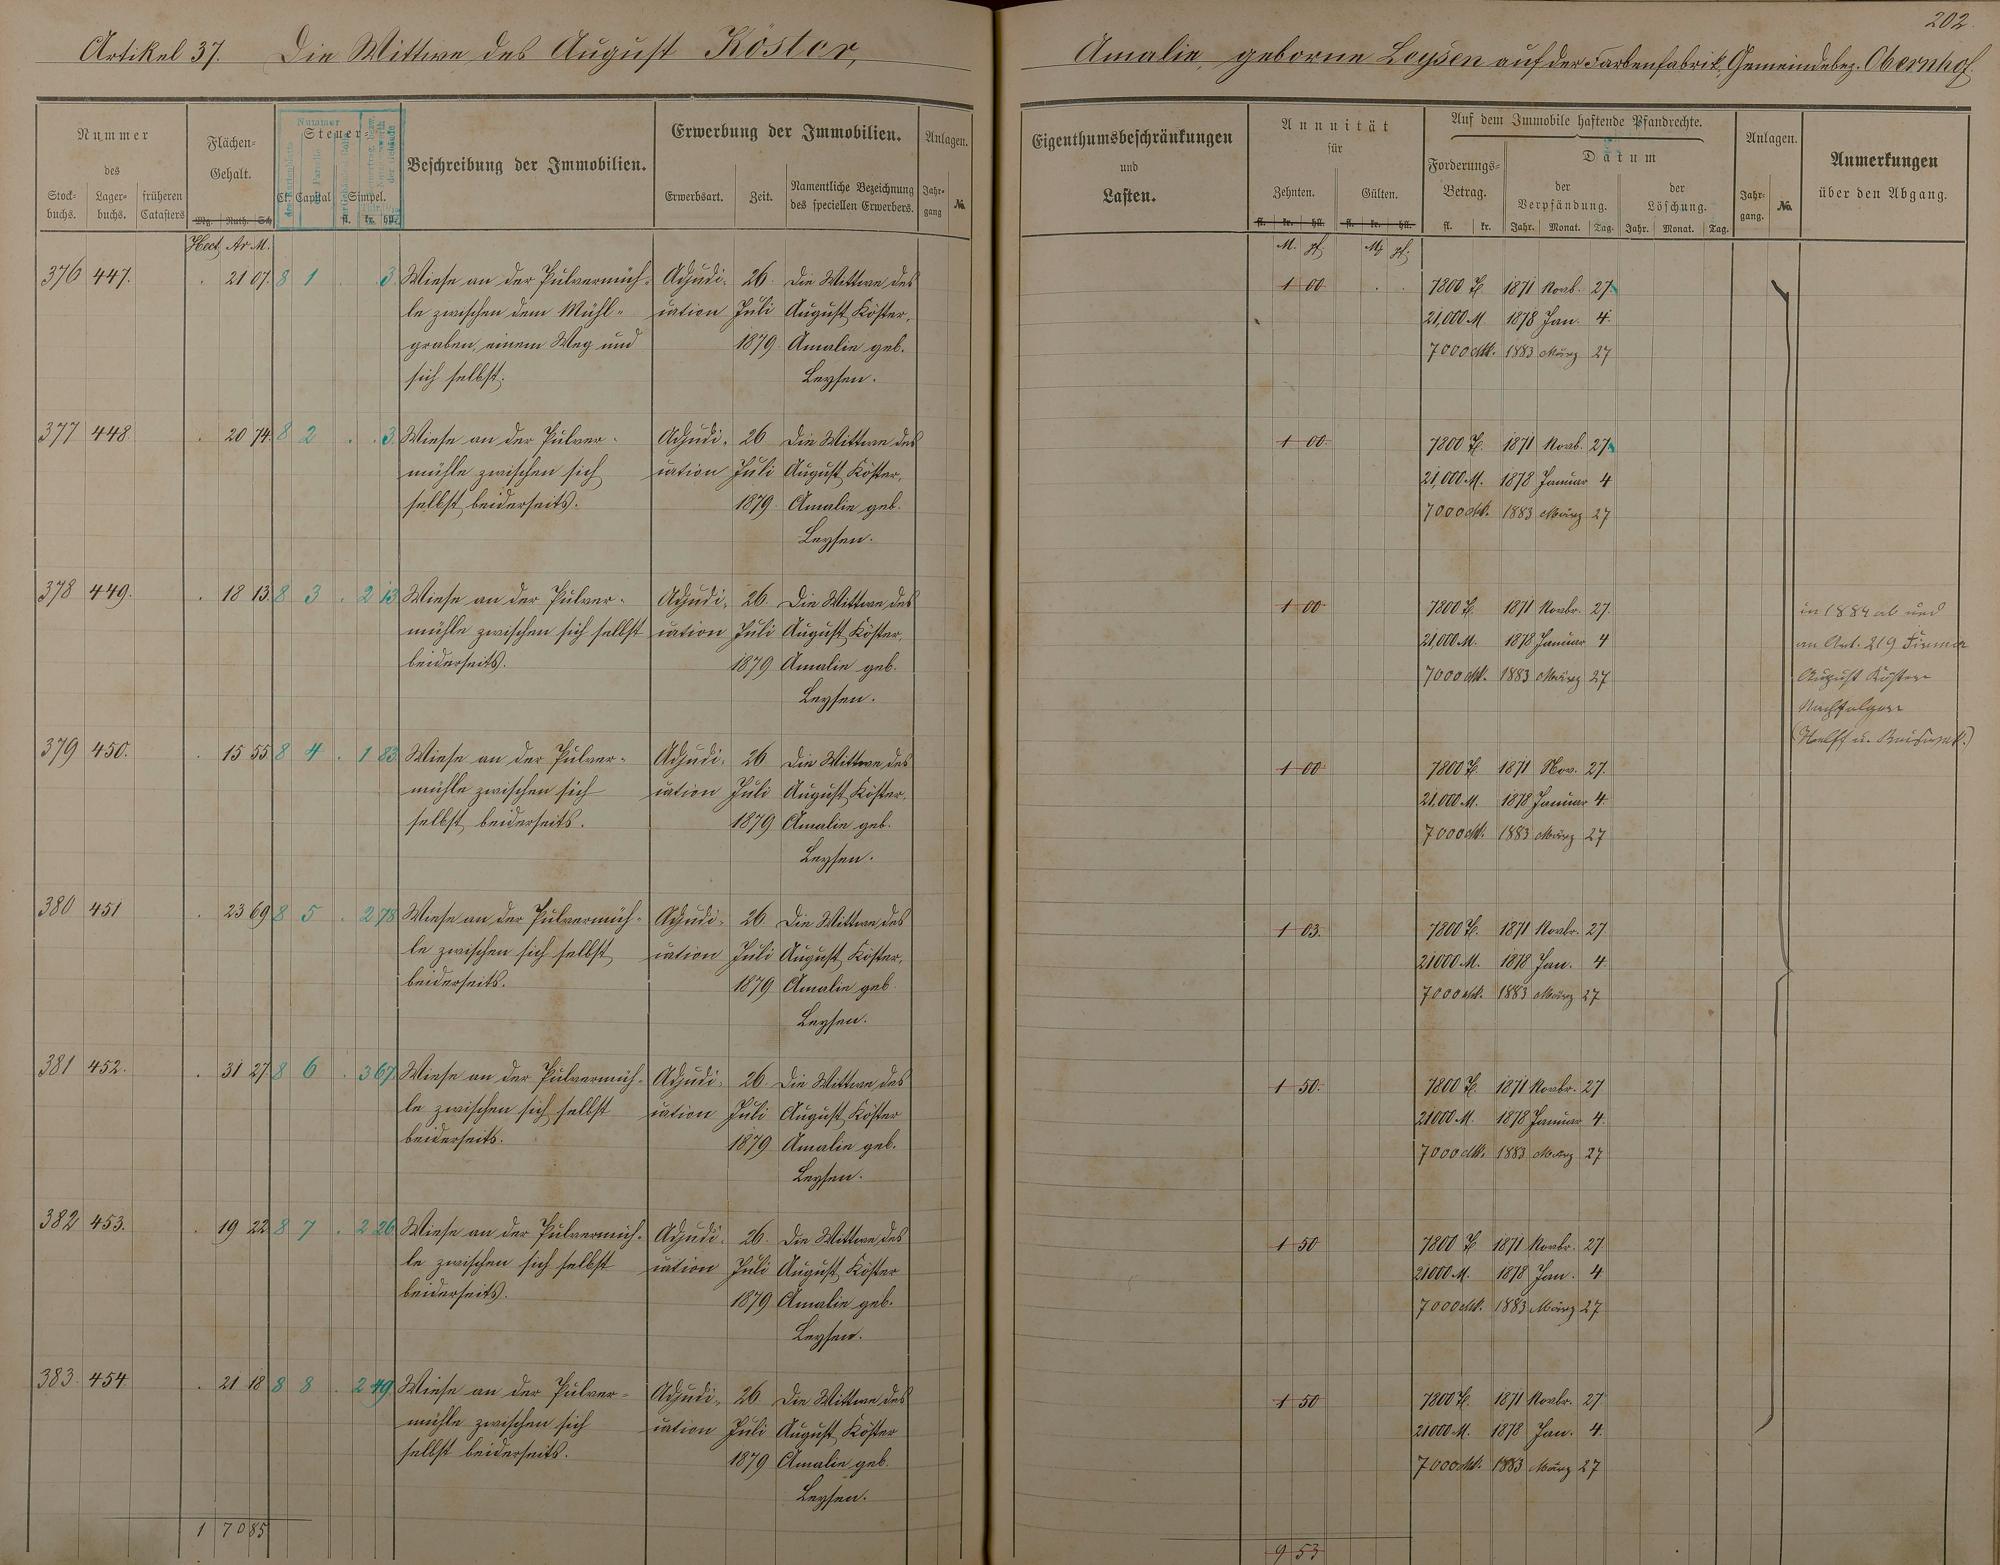 202.
Artikel 37. Die Wittwe des August Köster, Amalie, geborne Leysen auf der Farbenfabrik, Gemeindebez. Obernhof.
Nummer
des
Stock-buchs. Lager-buchs. früheren Catasters
Flächen-Gehalt.
Mg. Ruth. Sch.
Hect. Ar M.
Steuer-
Cl. Capital Simpel.
fl. kr. hll.
Nummer
Beschreibung der Immobilien.
Erwerbung der Immobilien.
Erwerbsart. Zeit. Namentliche Bezeichnung des speciellen Erwerbers.
Anlagen.
Jahr-gang No.
Eigenthumsbeschränkungen
und
Lasten.
Annuität
für
Zehnten. Gülten.
fl. kr. hll. fl. kr. hll.
M. pf. M. pf.
Auf dem Immobile haftende Pfandrechte.
Forderungs-Betrag.
fl. kr.
Datum
der Verpfändung. der Löschung.
Jahr. Monat. Tag. Jahr. Monat. Tag.
Anlagen.
Jahr-gang. No.
Anmerkungen
über den Abgang.
376 447. . 21 07. 8 1 . . 3. Wiese an der Pulvermüh- Adjudi- 26. Die Wittwe des 1 00 . . 7800 fl. 1871 Novb. 27.
le zwischen dem Mühl- cation Juli August Köster, 21,000 M. 1878 Jan. 4.
graben, einem Weg und 1879 Amalie geb. 7000 Mk. 1883 März 27
sich selbst. Leysen.
377 448 . 20 74. 8 2 . . 3. Wiese an der Pulver- Adjudi- 26 Die Wittwe des 1 00. 7800 fl. 1871 Novb. 27.
mühle zwischen sich cation Juli August Köster, 21,000 M. 1878 Januar 4
selbst beiderseits. 1879. Amalie geb. 7000 Mk. 1883 März 27
Leysen.
378 449. . 18 13. 8 3 . 2 13 Wiese an der Pulver- Adjudi- 26. Die Wittwe des 1 00. 7800 fl. 1871 Novbr. 27. in 1884 ab und
mühle zwischen sich selbst cation Juli August Köster, 21,000 M. 1878 Januar 4 an Art. 219 Firma
beiderseits. 1879 Amalie geb. 7000 Mk. 1883 März 27 August Köster
Leysen. Nachfolger
379 450. . 15 55 8 4 . 1 83 Wiese an der Pulver- Adjudi- 26 Die Wittwe des 1 00. 7800 fl. 1871 Nov. 27.
mühle zwischen sich cation Juli August Köster, 21,000 M. 1878 Januar 4.
selbst beiderseits. 1879 Amalie geb. 7000 Mk. 1883 März 27
Leysen.
380 451 . 23 69 8 5 . 2 78 Wiese an der Pulvermüh- Adjudi- 26. Die Wittwe des 1 03. 7800 fl. 1871 Novbr. 27
le zwischen sich selbst cation Juli August Köster, 21000 M. 1878 Jan. 4.
beiderseits. 1879 Amalie geb. 7000 Mk. 1883 März 27
Leysen.
381 452. . 31 27. 8 6 . 3 67. Wiese an der Pulvermüh- Adjudi- 26. Die Wittwe des 1 50. 7800 fl. 1871 Novbr. 27
le zwischen sich selbst cation Juli August Köster 21000 M. 1878 Januar 4.
beiderseits. 1879 Amalie geb. 7000 Mk. 1883 März 27
Leysen.
382 453. . 19 22 8 7 . 2 26 Wiese an der Pulvermüh- Adjudi- 26. Die Wittwe des 1 50 7800 fl. 1871 Novbr. 27
le zwischen sich selbst cation Juli August Köster 21000 M. 1878 Jan. 4
beiderseits. 1879 Amalie geb. 7000 Mk. 1883 März 27
Leysen.
383. 454 . 21 18 8 8 . 2 49. Wiese an der Pulver- Adjudi- 26. Die Wittwe des 1 50 7800 fl. 1871 Novbr. 27
mühle zwischen sich cation Juli August Köster 21000 M. 1878 Jan. 4.
selbst beiderseits. 1879 Amalie geb. 7000 Mk. 1883 März 27
Leysen.
1 70 85 9 53